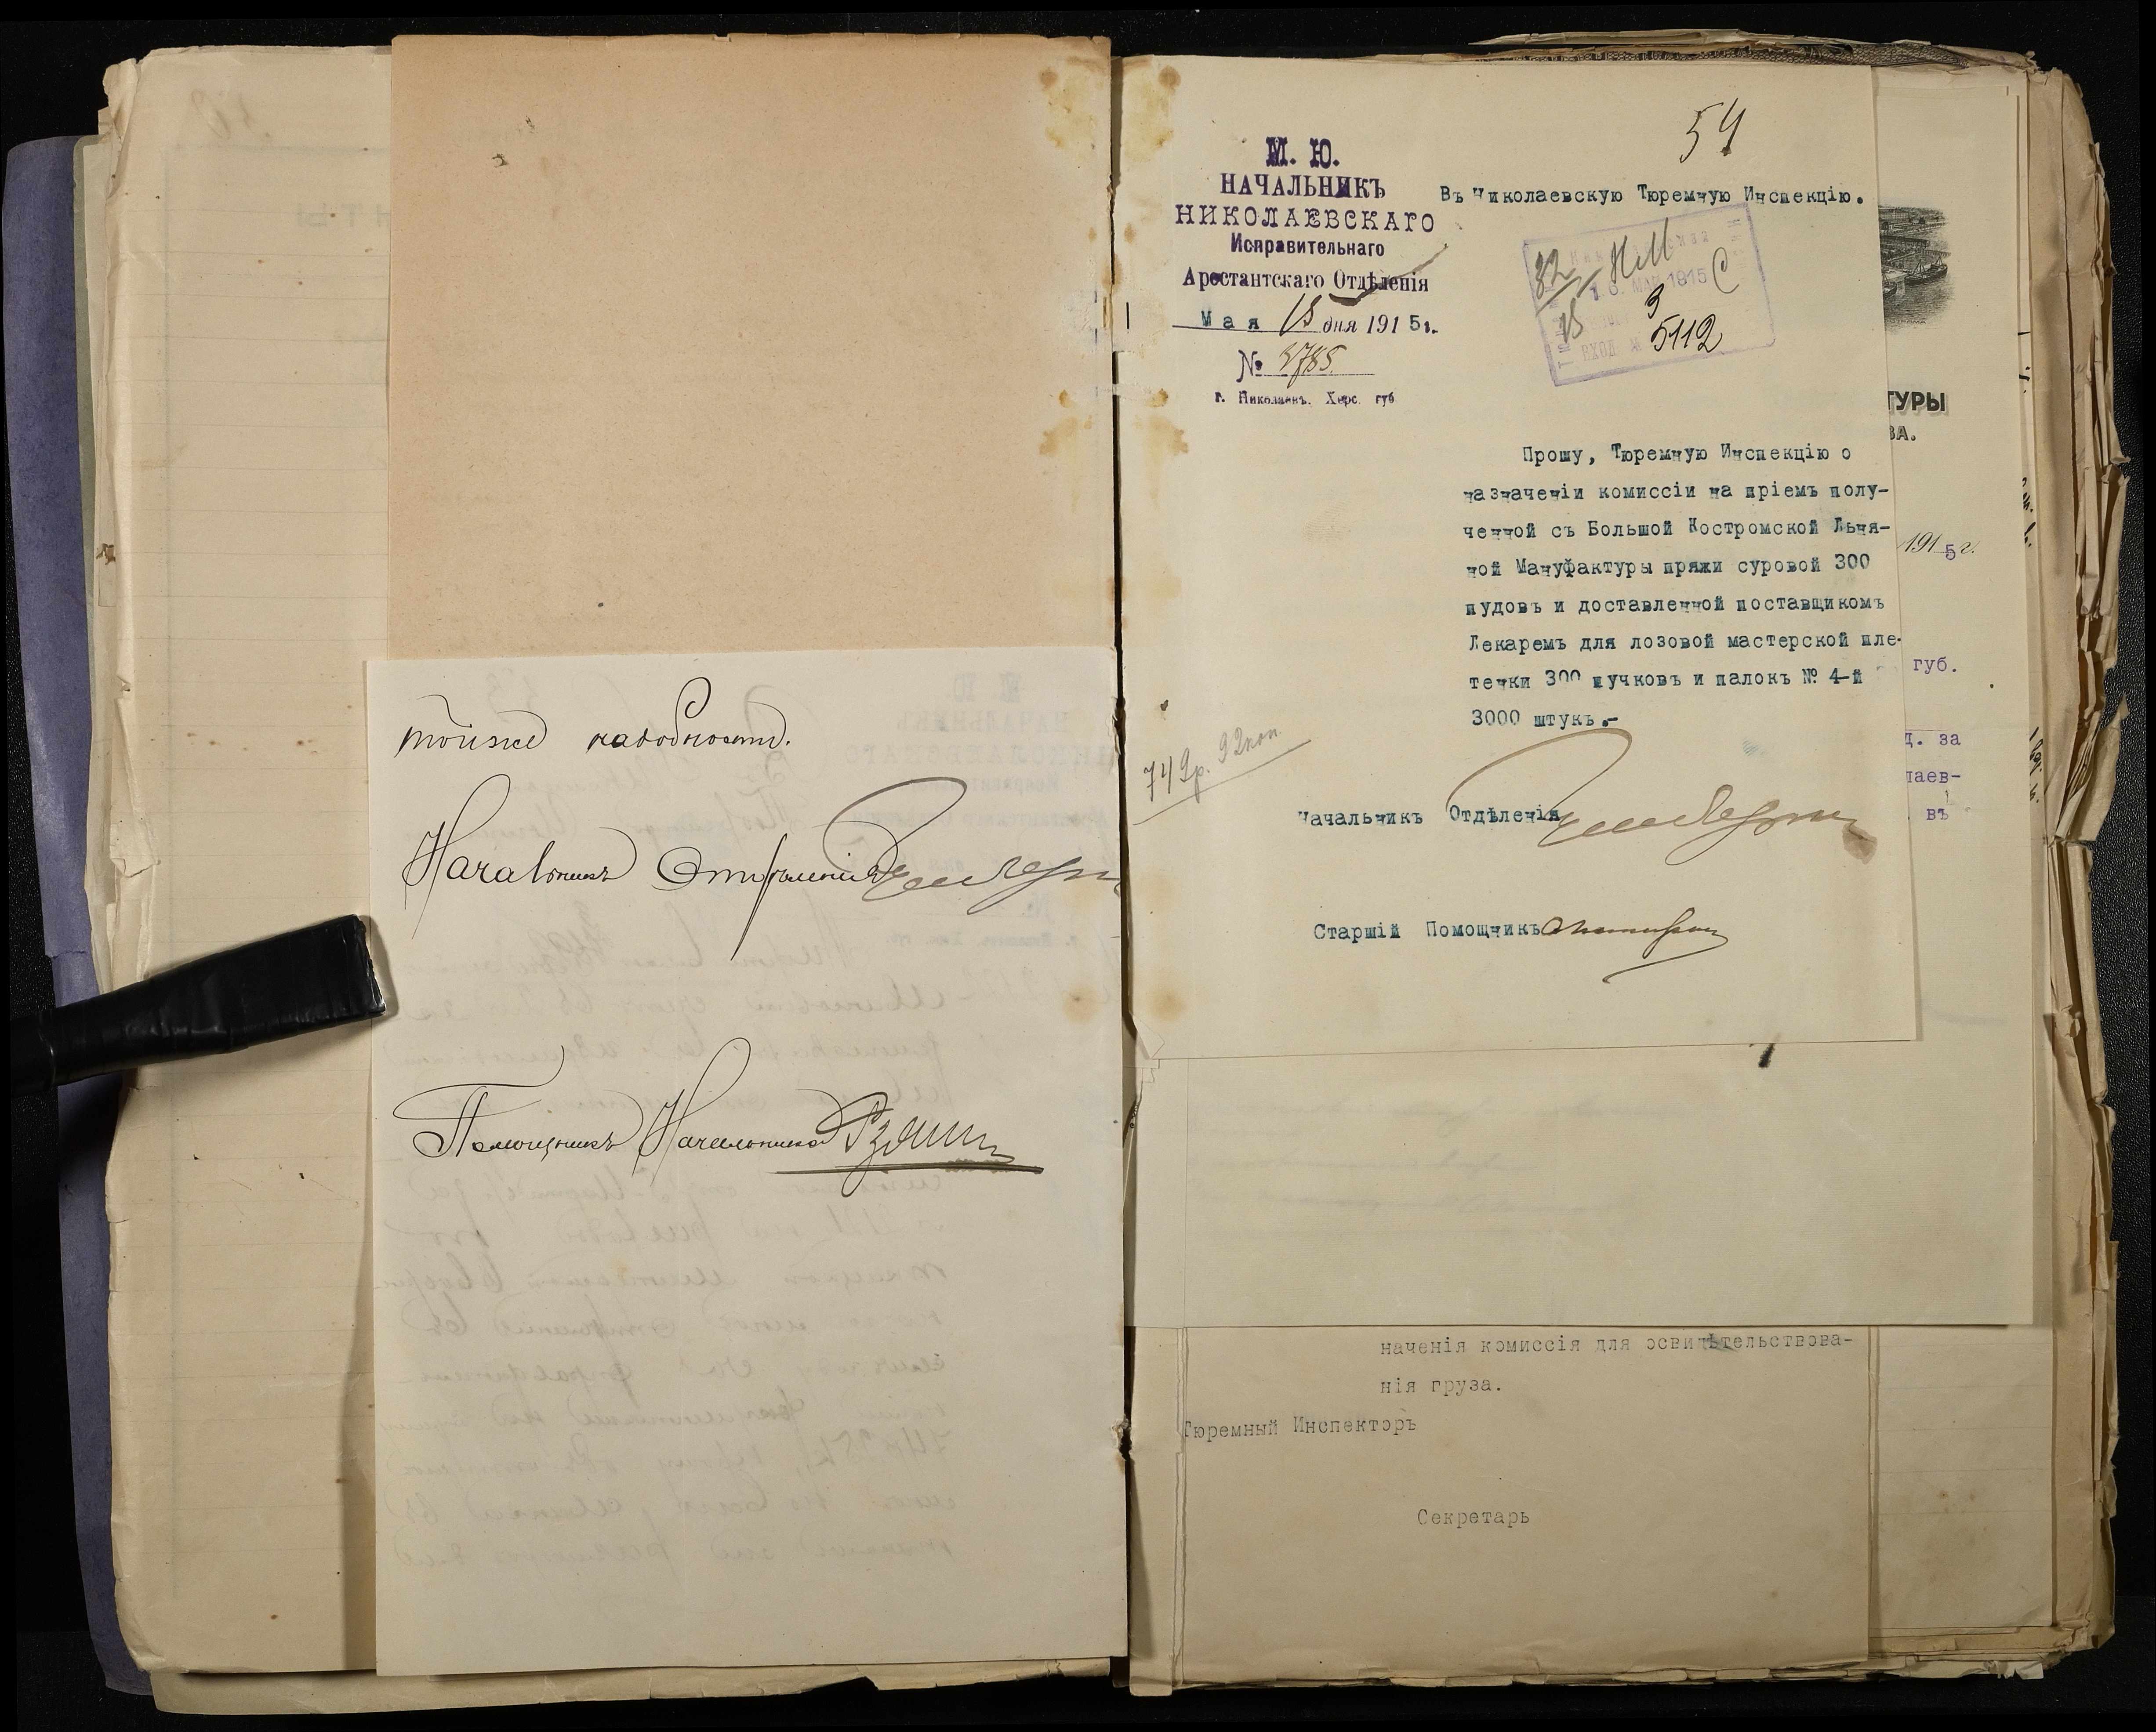 Начальникъ Отдѣленія
Помощникъ Начальника
54
М. Ю.
НАЧАЛЬНИКЪ
НИКОЛАЕВСКАГО
Исправительнаго
Арестантскаго Отдѣленія
Мая 15 дня 1915г.
№ 3785
г. Николаевъ. Херс. губ.
Въ Николаевскую Тюремную Инспекцію.
1915
ВХОД. № 5112
Прошу, Тюремную Инспекцію о
назначеніи комиссіи на пріемъ полу-
ченной съ Большой Костромской Льня-
ной Мануфактуры пряжи суровой 300
пудовъ и доставленной поставщикомъ
Лекаремъ для лозовой мастерской пле-
тенки 300 пучковъ и палокъ № 4-й
3000 штукъ.-
74 9р. 92коп.
Начальникъ Отдѣленія
Старшій Помощникъ
ТУРЫ
ВА.
1915г.
губ.
д. за
лаев-
въ
наченія комиссія для освидѣтельствова-
нія груза.
Тюремный Инспекторъ
Секретарь